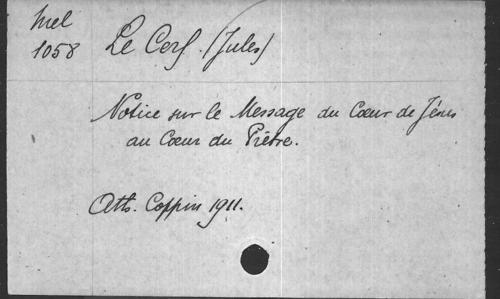 Mel
1058
Le Cerf. (Jules)
Notice sur le Message du Cœur de Jésus
au Cœur du Prêtre.
Ath. Coppin 1911.